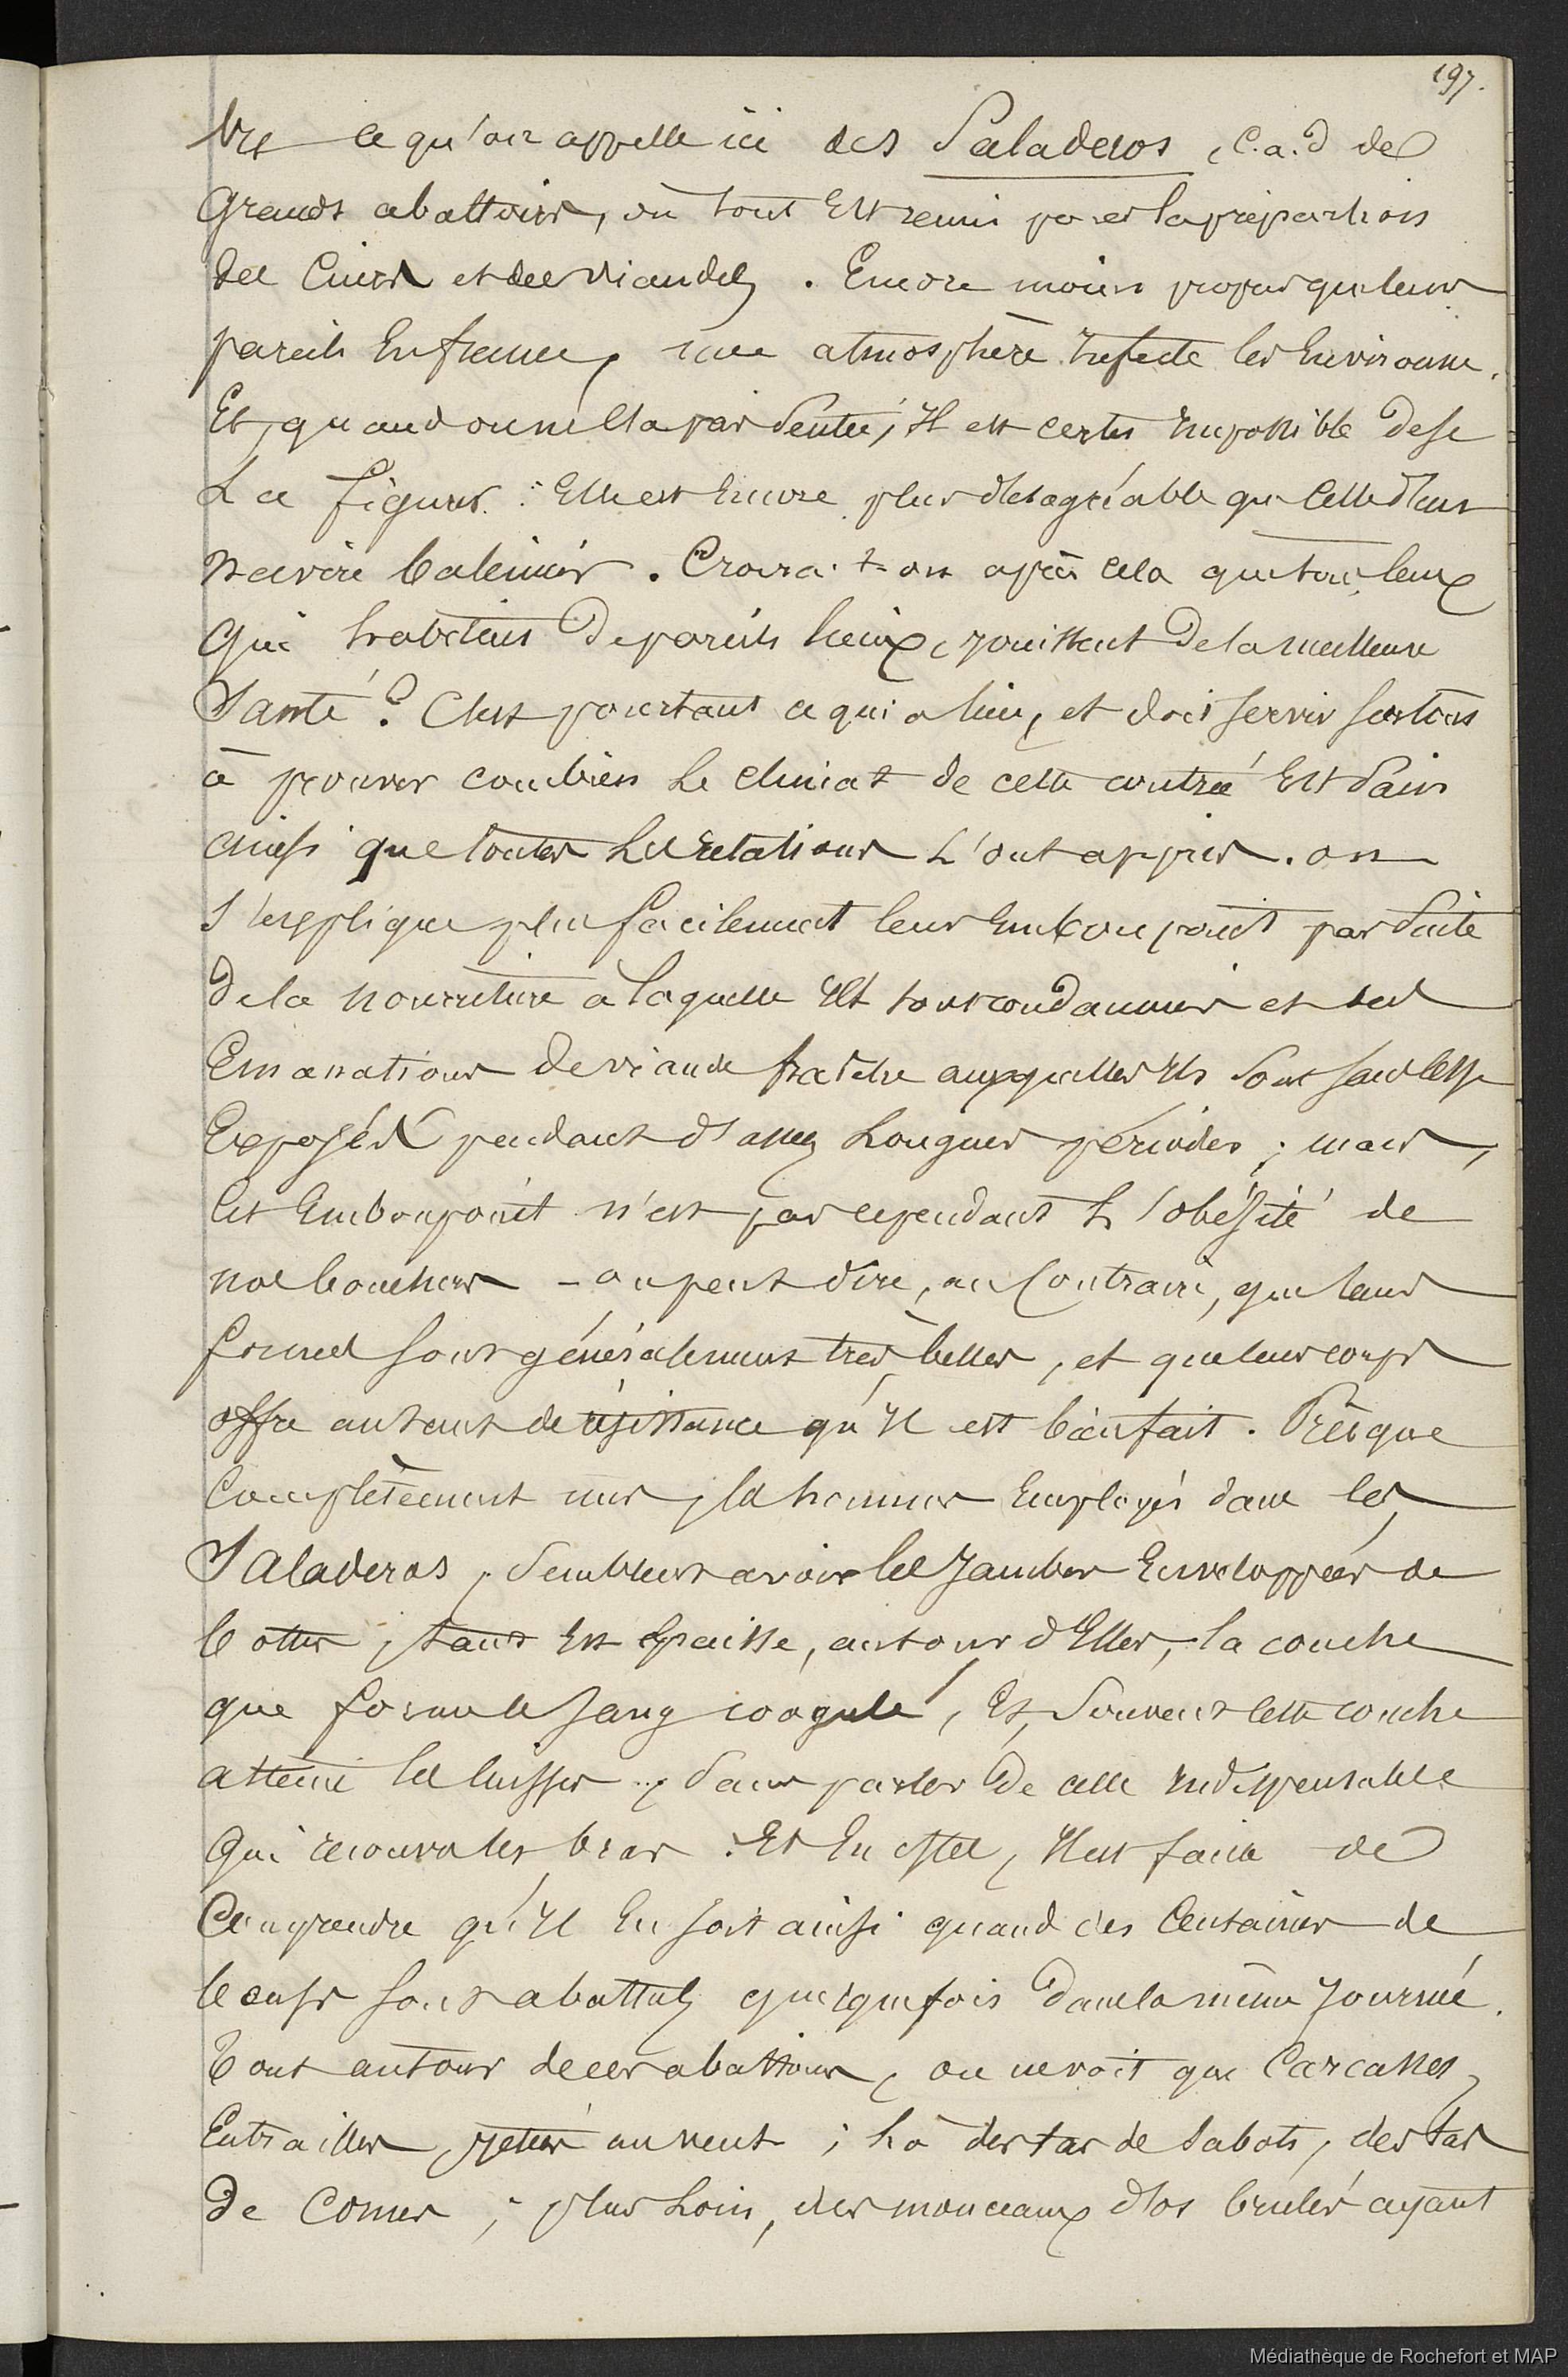 197.
tre ce qu'on appelle ici des Saladeros, c.a.d de
Grands abattoirs, où tout est réuni pour la prépartion
des Cuirs et des viandes. Encore moins propres que leurs
pareils En france, une atmosphère Infecte les Environne.
Et, quand on ne l'a pas Sentie, Il est certes Impossible de se
La figurer : Elle est Encore plus désagréable que celle d'un
navire baleinier. Croira-t-on après cela que tous ceux
Qui habitent De pareils lieux, jouissent De la meilleure
Santé? C'est pourtant ce qui a lieu, et doit servir surtout
à prouver combien Le climat de cette contrée Est Sain
ainsi que toutes Les relations L'ont appris. on
s'explique plus facilement leur Embonpoint par Suite
De la nourriture à laquelle Ils sont condamnés et des
Emanations de viande fraîche auxquelles Ils Sont sans cesse
Exposés pendant d'assez Longues périodes ; mais,
Cet Embonpoint n'est pas cependant L'obésité de
nos bouchers - on peut dire, au Contraire, que leurs
formes sont généralement très belles, et que leur corps
offre autant de résistance qu'Il est bien fait. Prèsque
Complètement nus, les hommes Employés dans les
Saladeros, Semblent avoir les Jambes Enveloppées de
bottes, tant Est épaisse, autour d'Elles, la couche
que forme le Sang coagulé, Et, Souvent cette couche
atteint les cuisses .., Sans parler De celle Indispensable
Qui recouvre les bras. Et En effet, Il est facile de
Comprendre qu'Il En soit ainsi quand des Centaines de
boeufs sont abattus quelquefois Dans la même Journée.
Tout autour de ces abattoirs, on ne voit que Carcasses,
Entrailles jetées au vent ; Là des tas de Sabots, des tas
De Cornes ; plus Loin, des monceaux d'os brulés ayant
Médiathèque de Rochefort et MAP